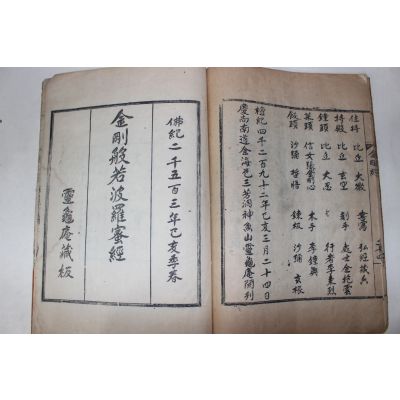 金剛經
住持 比丘 大徹 書寫 弘經
持殿 比丘 刻手 處士金 雲
鐘頭 比丘 大思 行者 李東烈
菜頭 信女 張 剛心 木手 李鍾
飯頭 沙彌 哲悟 鍊板 沙彌 玄機
檀紀四千二百九十二年己亥三月二十四日
慶尚南道金海邑三芳洞神魚山靈龜庵開刊
佛紀二千五百三年己亥季春
金剛般若波羅蜜經
靈龜庵藏板